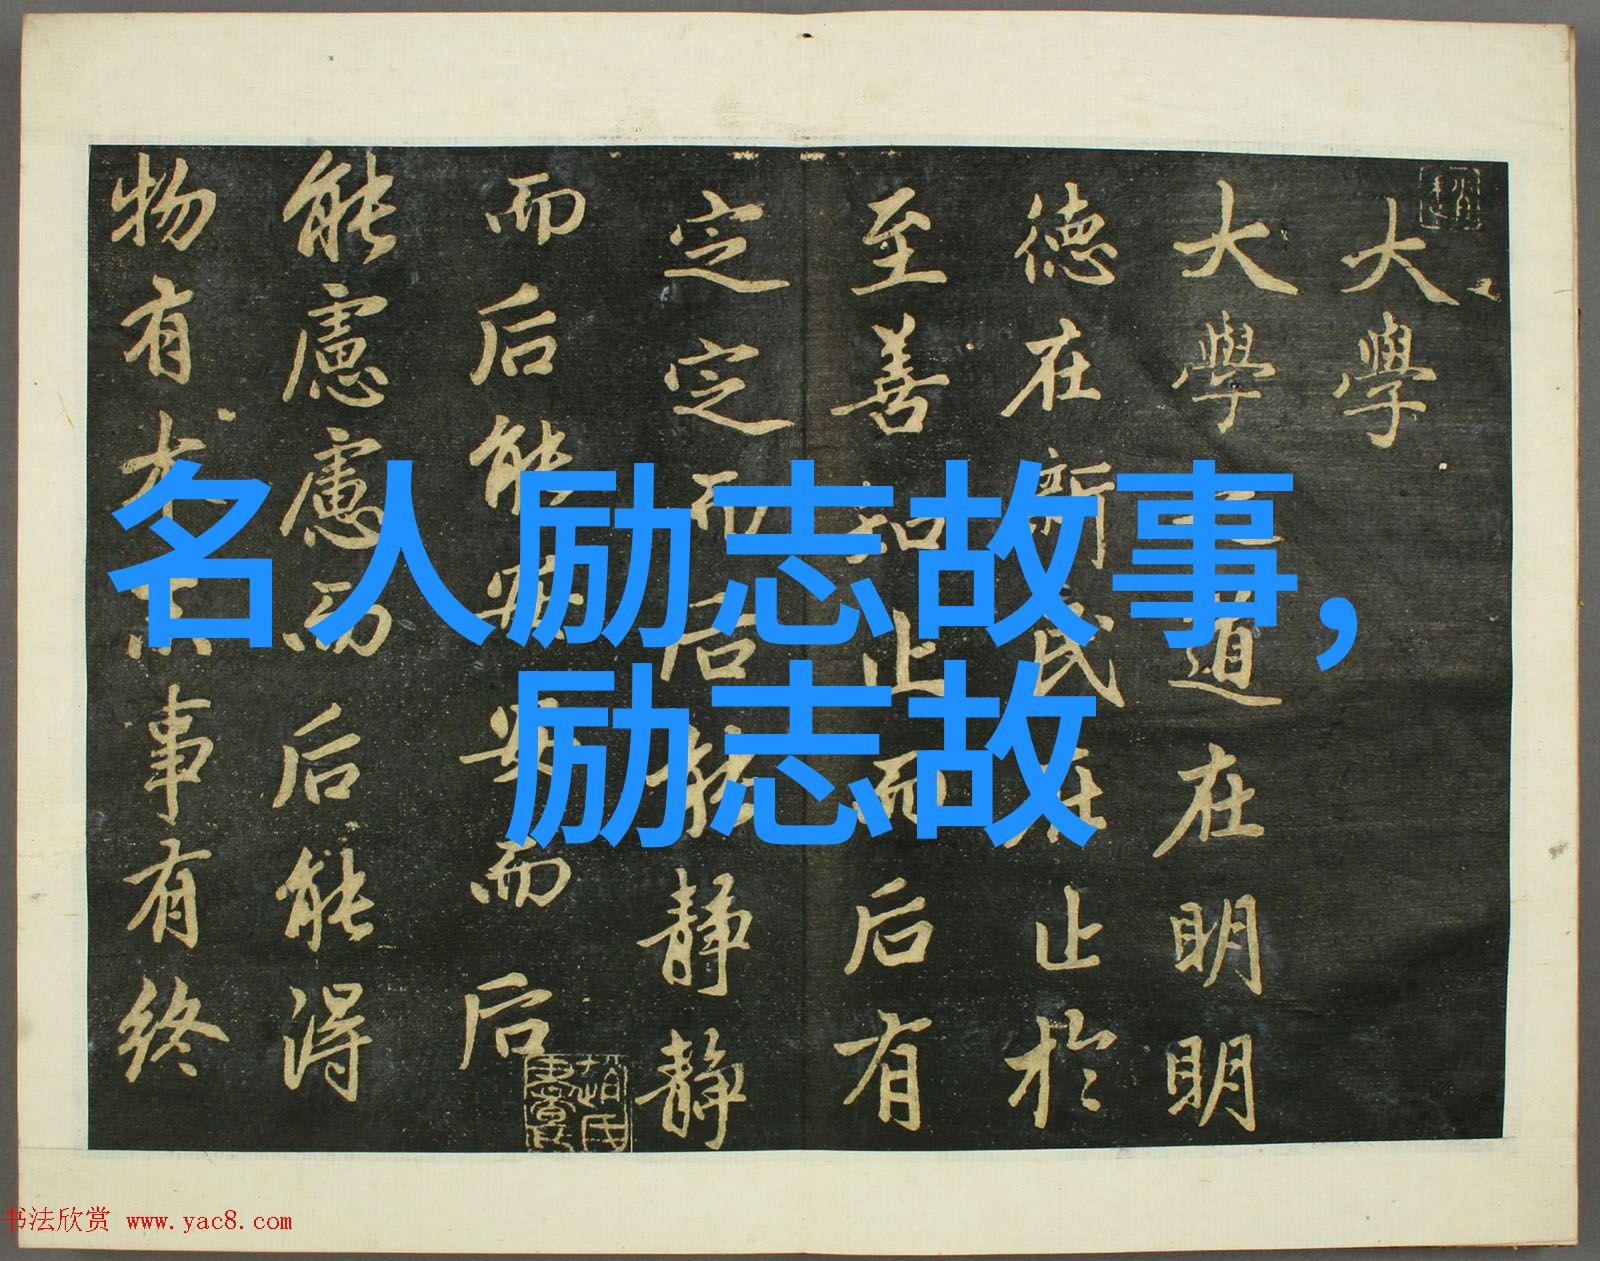 名人励志故事,
励志故
大學
大學之道在明明
德在新民在止於
至善知止而后有
定定而后能静静
而后能安安而后
能慮慮而后能得
物有本末事有終
书法欣赏 www.yac8.com